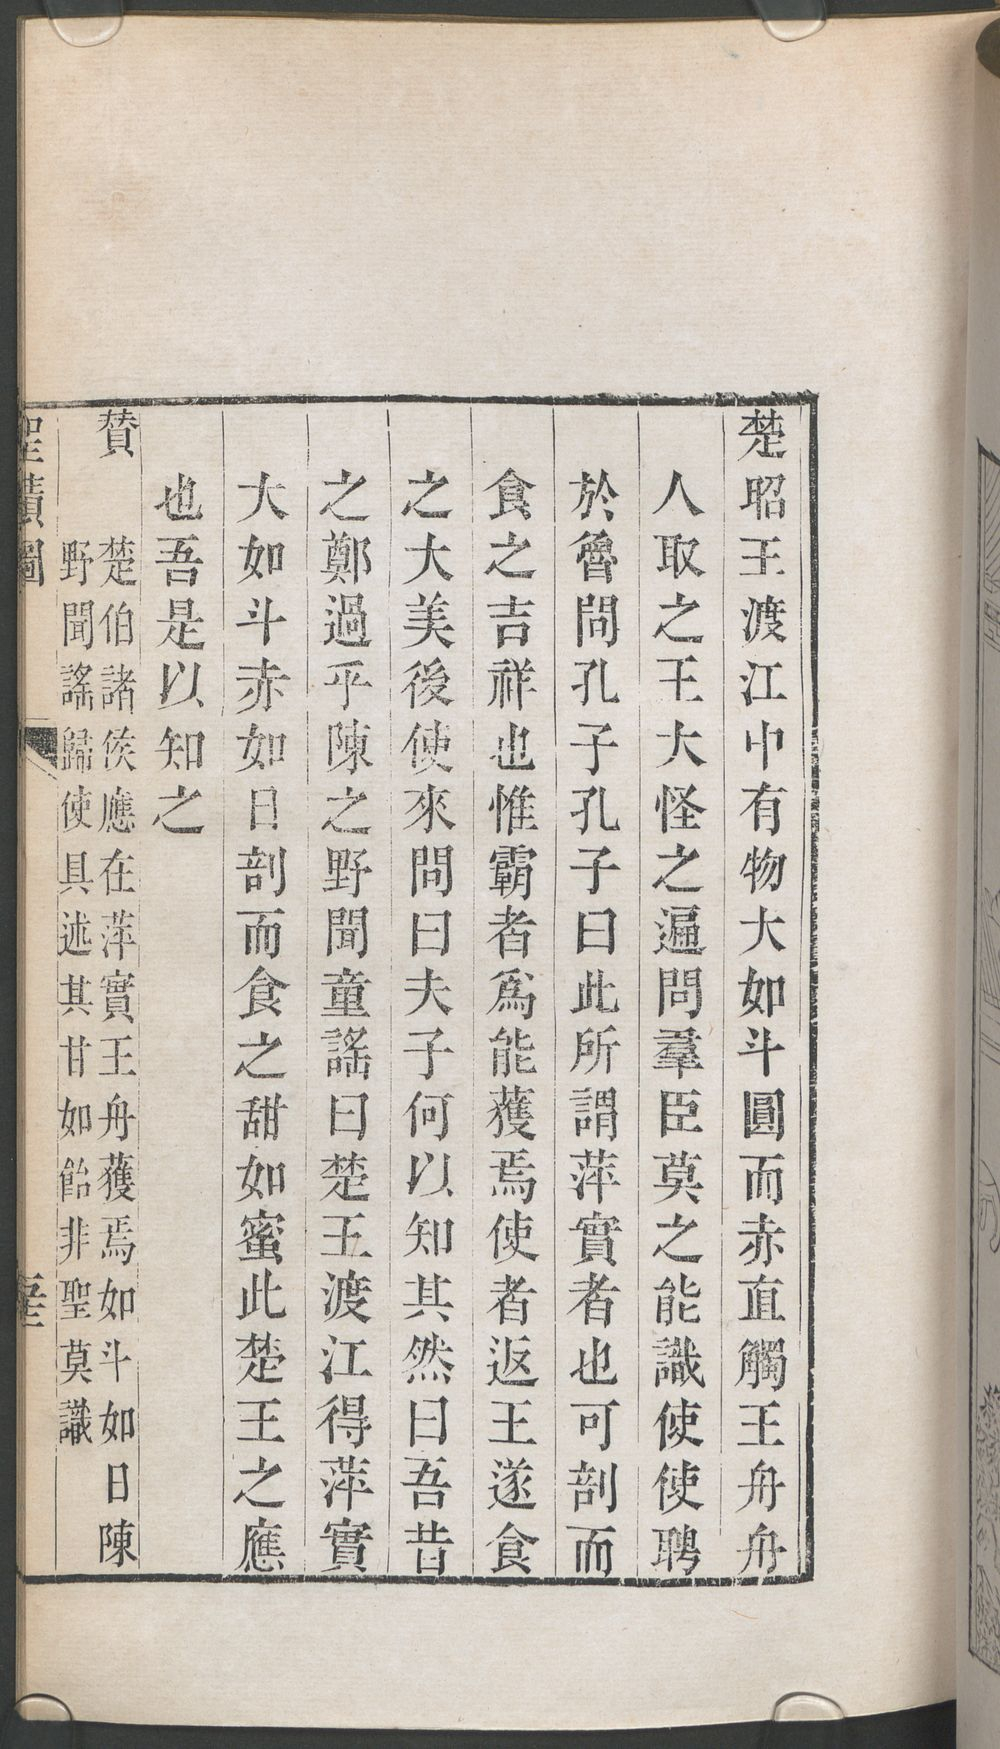 楚昭王渡江中有物大如斗圓而赤直觸王舟舟
人取之王大怪之遍問羣臣莫之能識使使聘
於魯問孔子孔子曰此所謂萍實者也可剖而
食之吉祥也惟霸者爲能獲焉使者返王遂食
之大美後使來問曰夫子何以知其然曰吾昔
之鄭過乎陳之野聞童謠曰楚王渡江得萍實
大如斗赤如日剖而食之甜如蜜此楚王之應
也吾是以知之
贊
楚伯諸侯應在萍實王舟獲焉如斗如日陳
野聞謠歸使具述其甘如飴非聖莫識
聖蹟圖